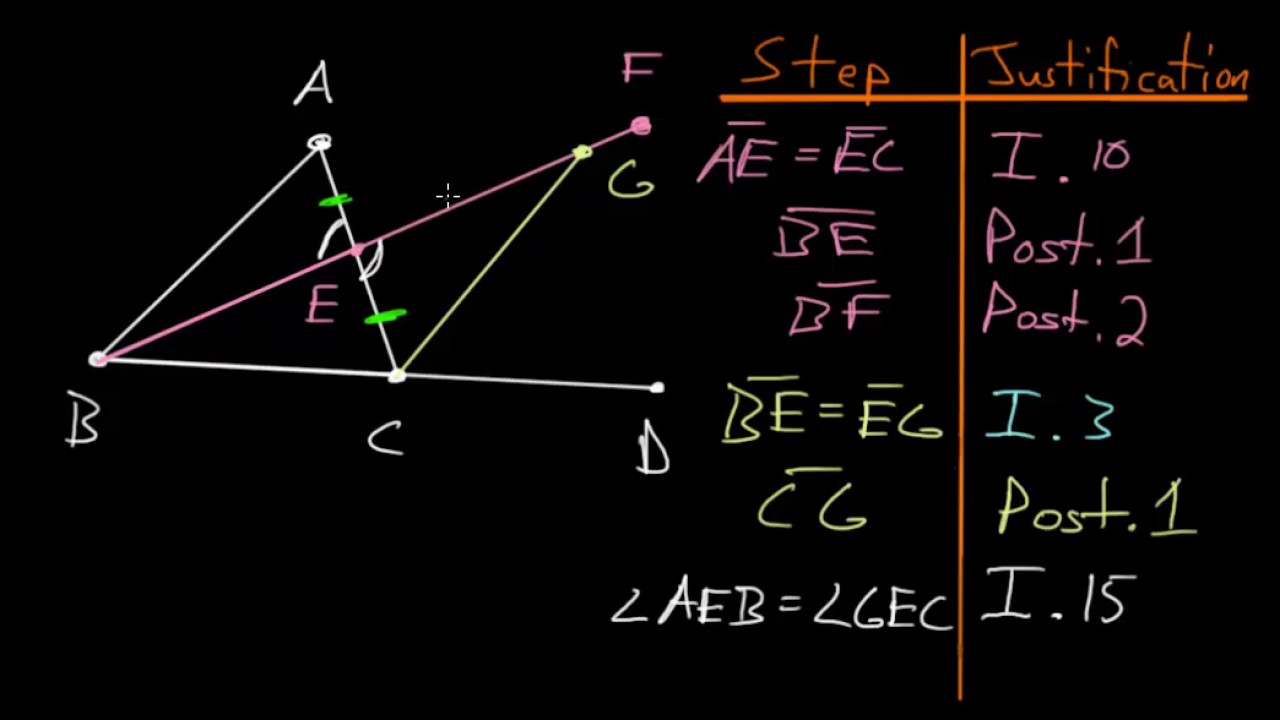 A
F
G
E
B
C
D
Step Justification
AE = EC I. 10
BE Post. 1
BF Post. 2
BE = EG I. 3
CG Post. 1
∠AEB = ∠GEC I. 15